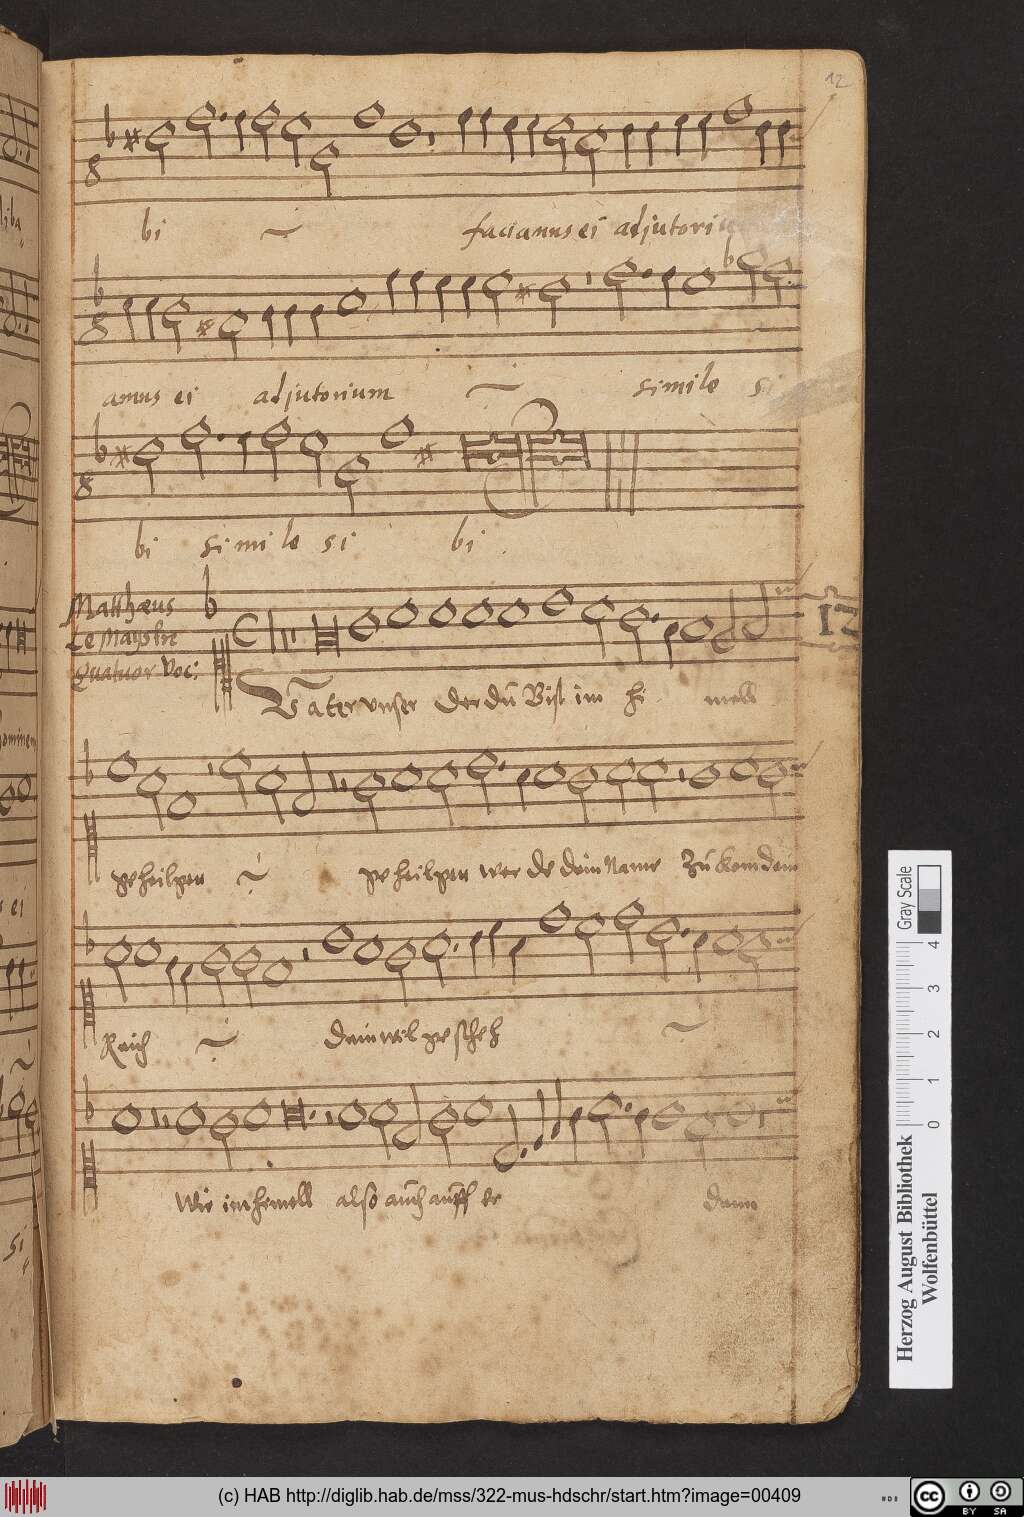 12
bi faciamus ei adjutori
amus ei adjutorium simile si
bi simile si bi
Matthæus
Le Maystre
Quatuor Voc:
Vater unser der dū Bist im hi mell
12
geheilgen geheilgen wer de dein Name Zū kom dein
Reich dein wil gescheh
Wie im hemell also aūch aūff er denn
Gray Scale
0 1 2 3 4
Herzog August Bibliothek
Wolfenbüttel
(c) HAB http://diglib.hab.de/mss/322-mus-hdschr/start.htm?image=00409
cc BY SA